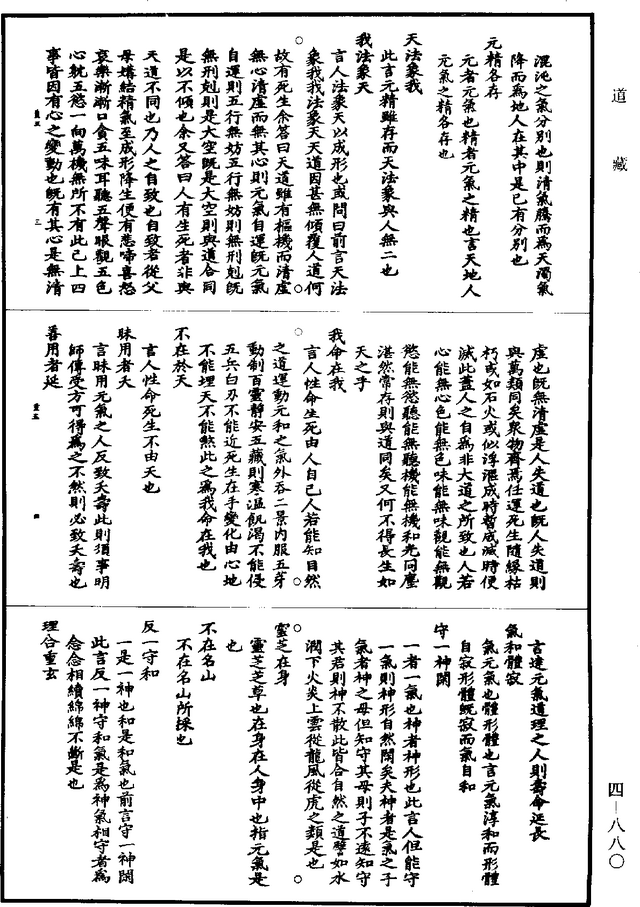 道藏
混沌之氣分別也則清氣騰而爲天濁氣
降而爲地人在其中是已有分別也
元精各存
元者元氣也精者元氣之精也言天地人
元氣之精各存也
天法象我
此言元精雖存而天法象與人無二也
我法象天
言人法象天以成形也或問曰前言天法
象我我法象天天道因甚無傾覆人道何
故有死生余答曰天道雖有樞機而清虛
無心清虛而無其心則元氣自運旣元氣
自運則五行無妨五行無妨則無刑剋旣
無刑剋則是大空旣是大空則與道合同
是以不傾也余又答曰人有生死者非與
天道不同也乃人之自致也自致者從父
母媾結精氣至成形降生便有悲啼喜怒
哀樂漸漸口食五味耳聽五聲眼觀五色
心躭五慾一向萬機無所不有此已上四
事皆因有心之變動也旣有其心是無清
虛也旣無清虛是人失道也旣人失道則
與萬類同矣衆物齊焉任運死生隨緣枯
朽或如石火或似浮漚成時暫成滅時便
滅此蓋人之自爲非大道之所致也人若
心能無心色能無色味能無味觀能無觀
慾能無慾聽能無聽機能無機和光同塵
湛然常存則與道同矣又何不得長生如
天之乎
我命在我
言人性命生死由人自己人若能知自然
之道運動元和之氣外吞二景内服五芽
動制百靈靜安五藏則寒溫飢渴不能侵
五兵白刃不能近死生在手變化由心地
不能埋天不能煞此之爲我命在我也
不在於天
言人性命死生不由天也
昧用者夭
言昧用元氣之人反致夭壽此則須事明
師傳受方可得爲之不然則必致夭壽也
善用者延
言達元氣道理之人則壽命延長
氣和體寂
氣元氣也體形體也言元氣淳和而形體
自寂形體旣寂而氣自和
守一神閑
一者一氣也神者神形也此言人但能守
一氣則神形自然閑矣夫神者是氣之子
氣者神之母但知守其母則子不遠知守
其君則神不散此皆合自然之道譬如水
潤下火炎上雲從龍風從虎之類是也
靈芝在身
靈芝芝草也在身在人身中也指元氣是
也
不在名山
不在名山所採也
反一守和
一是一神也和是和氣也前言守一神閑
此言反一神守和氣是爲神氣相守者爲
念念相續綿綿不斷是也
理合重玄
四—八八〇